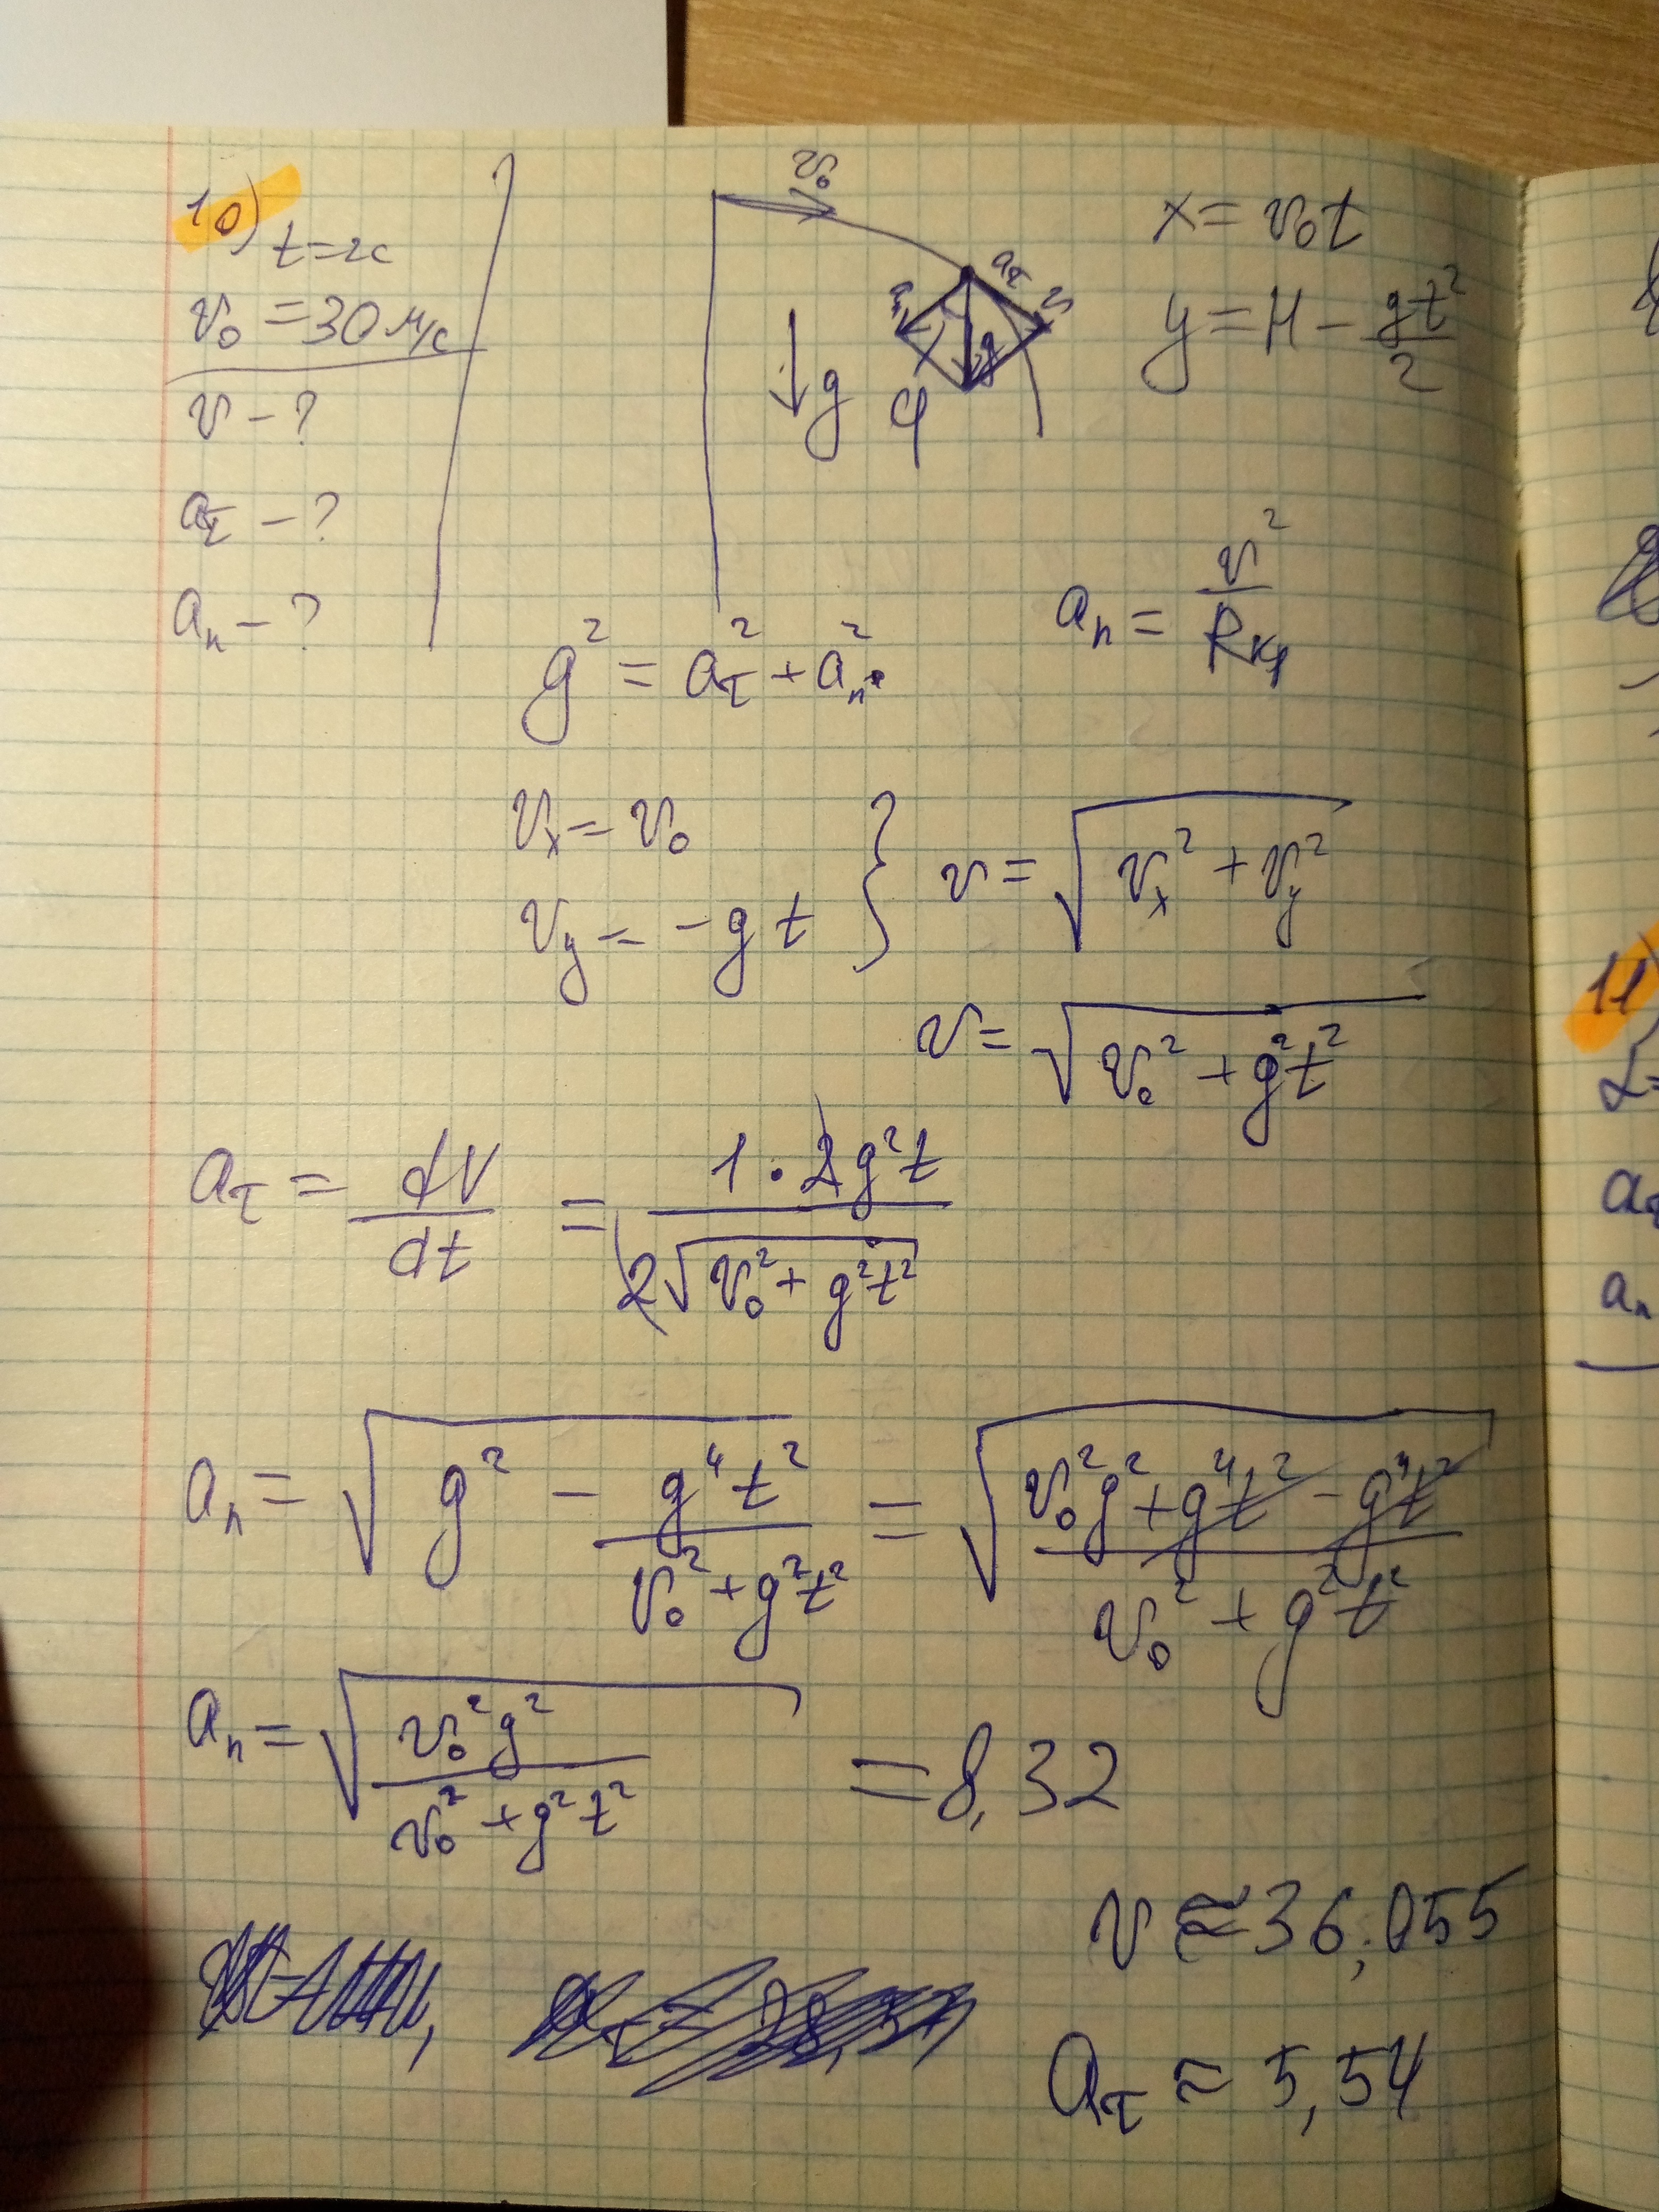 10) t=2с
v₀ = 30 м/с
v – ?
aτ – ?
aₙ – ?
v₀
aτ
v
aₙ
g
g
φ
x = v₀t
y = H – gt²/2
aₙ = v²/Rкр
g² = aτ² + aₙ²
vₓ = v₀
v_y = –gt
} v = √(vₓ² + v_y²)
v = √(v₀² + g²t²)
aτ = dV/dt = 1·2g²t / 2√(v₀² + g²t²)
aₙ = √(g² – g⁴t²/(v₀² + g²t²)) = √((v₀²g² + g⁴t² – g⁴t²)/(v₀² + g²t²))
aₙ = √(v₀²g²/(v₀² + g²t²)) = 8,32
v ≈ 36,055
aτ ≈ 5,54
11)
α=
aτ
aₙ